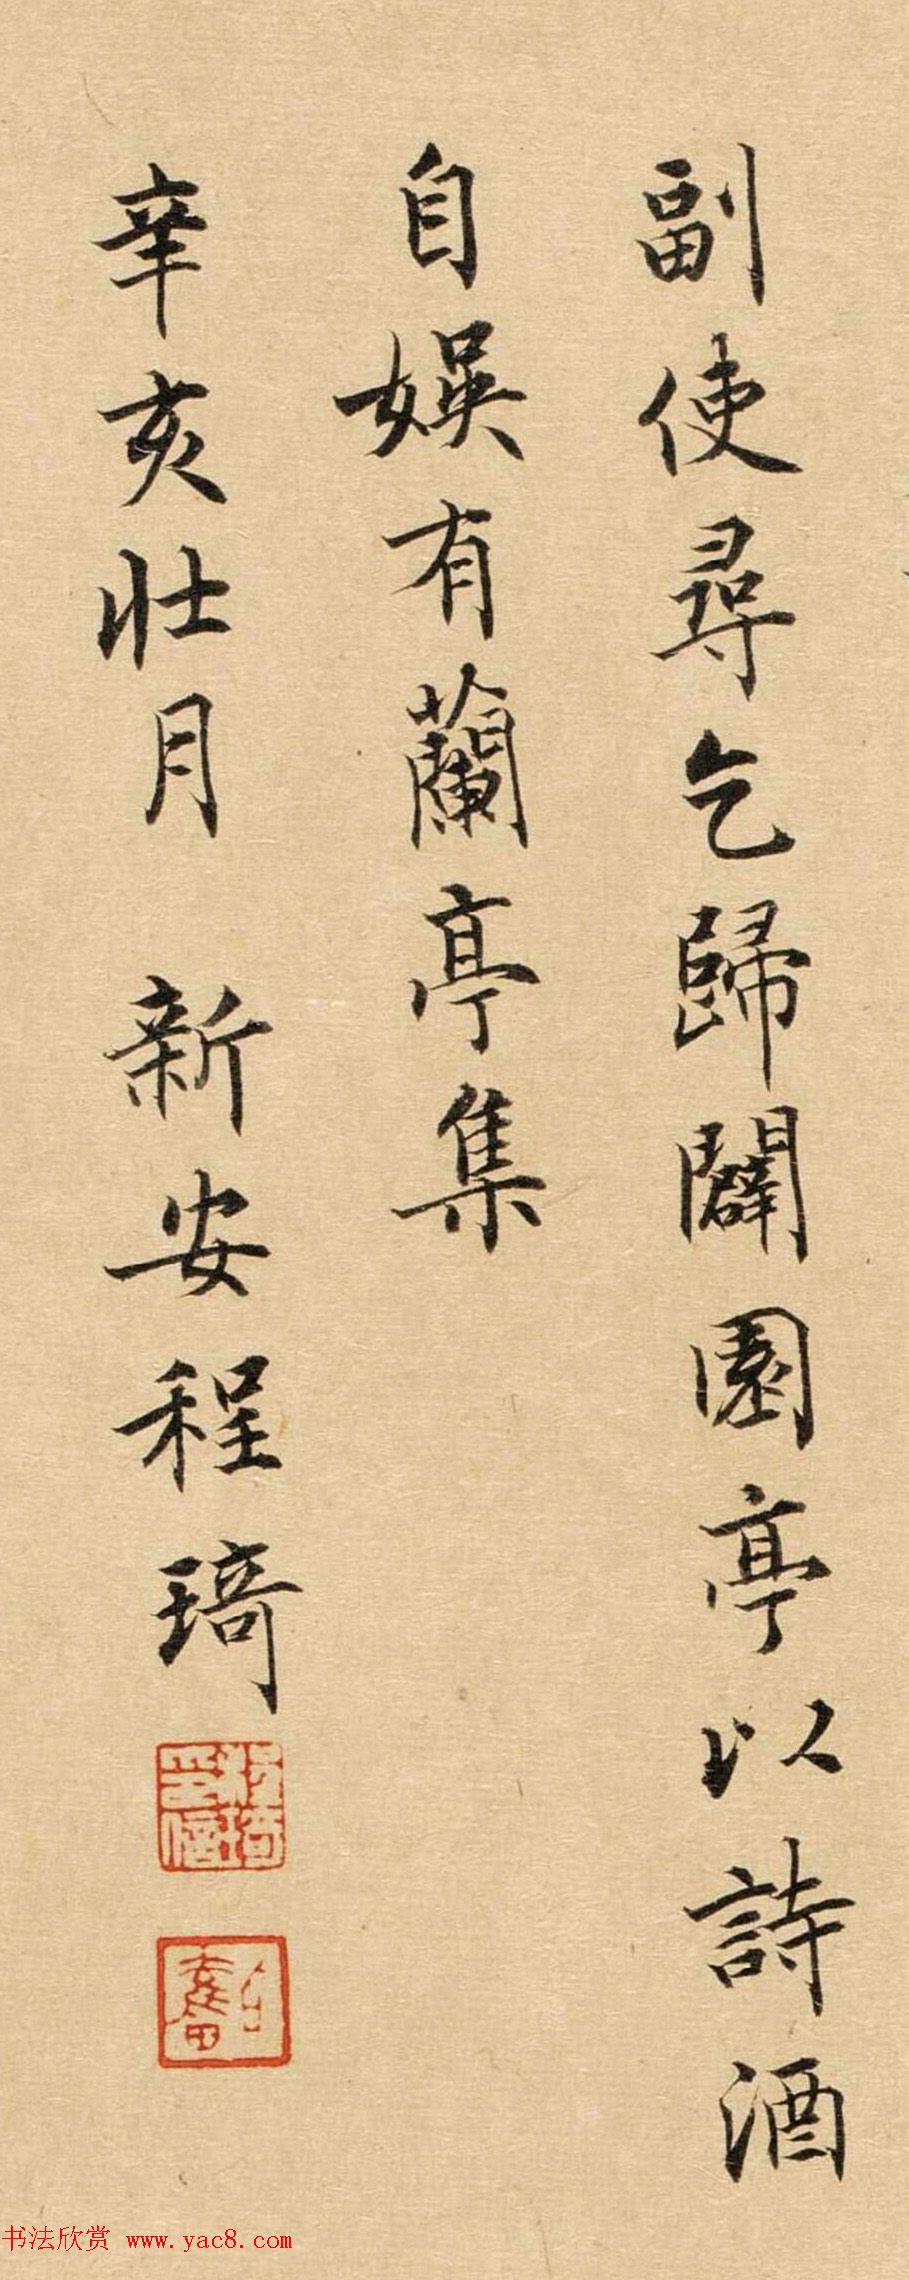 副使尋乞歸闢園亭以詩酒
自娛有蘭亭集
辛亥壯月 新安程琦
程琦印信
书法欣赏 www.yac8.com